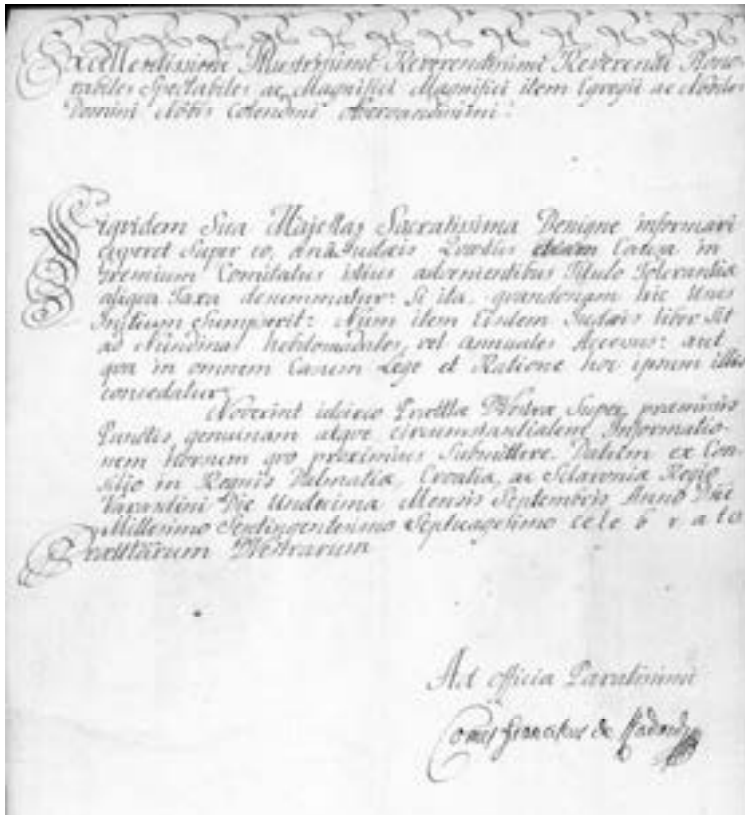 Excellentissime Illustrissimi Reverendissimi Reverendi Hono-
rabiles Spectabiles ac Magnifici Magnifici item Egregii ac Nobiles
Domini Nobis Colendissimi Observandissimi!
Siqvidem Sua Majestas Sacratissima Benigne informari
cuperet Super eo, an Judæis Qvæstus Causa in
Gremium Comitatus istius advenientibus Titulo Tolerantiæ
aliqva Taxa desummatur? Si ita, qvandonam hic Usus
Initium Sumpserit? Num item Eisdem Judæis liber Sit
ad Nundinas hebdomadales, vel annuales Accessus? aut
qva in omnem Casum Lege et Ratione hoc ipsum illis
concedatur?
Noverint idcirco Prættlæ Vestræ Super præmissis
Punctis genuinam atqve circumstantialem Informatio-
nem horsum qvo proximius Submittere. Datum ex Con-
silio in Regnis Dalmatiæ, Croatiæ, ac Sclavoniæ Regio
Varasdini Die Undecima Mensis Septembris Anno Dni
Millesimo Septingentesimo Septuagesimo celebrato
Prættlarum Vestrarum
Ad officia Paratissimi
Comes Franciscus de